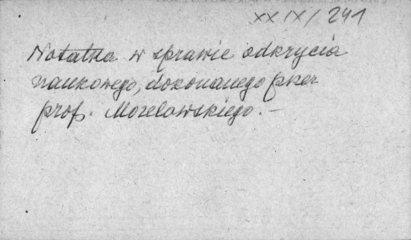 XXIX/241
Notatka w sprawie odkrycia
naukowego, dokonanego przez
prof. Morelowskiego. —